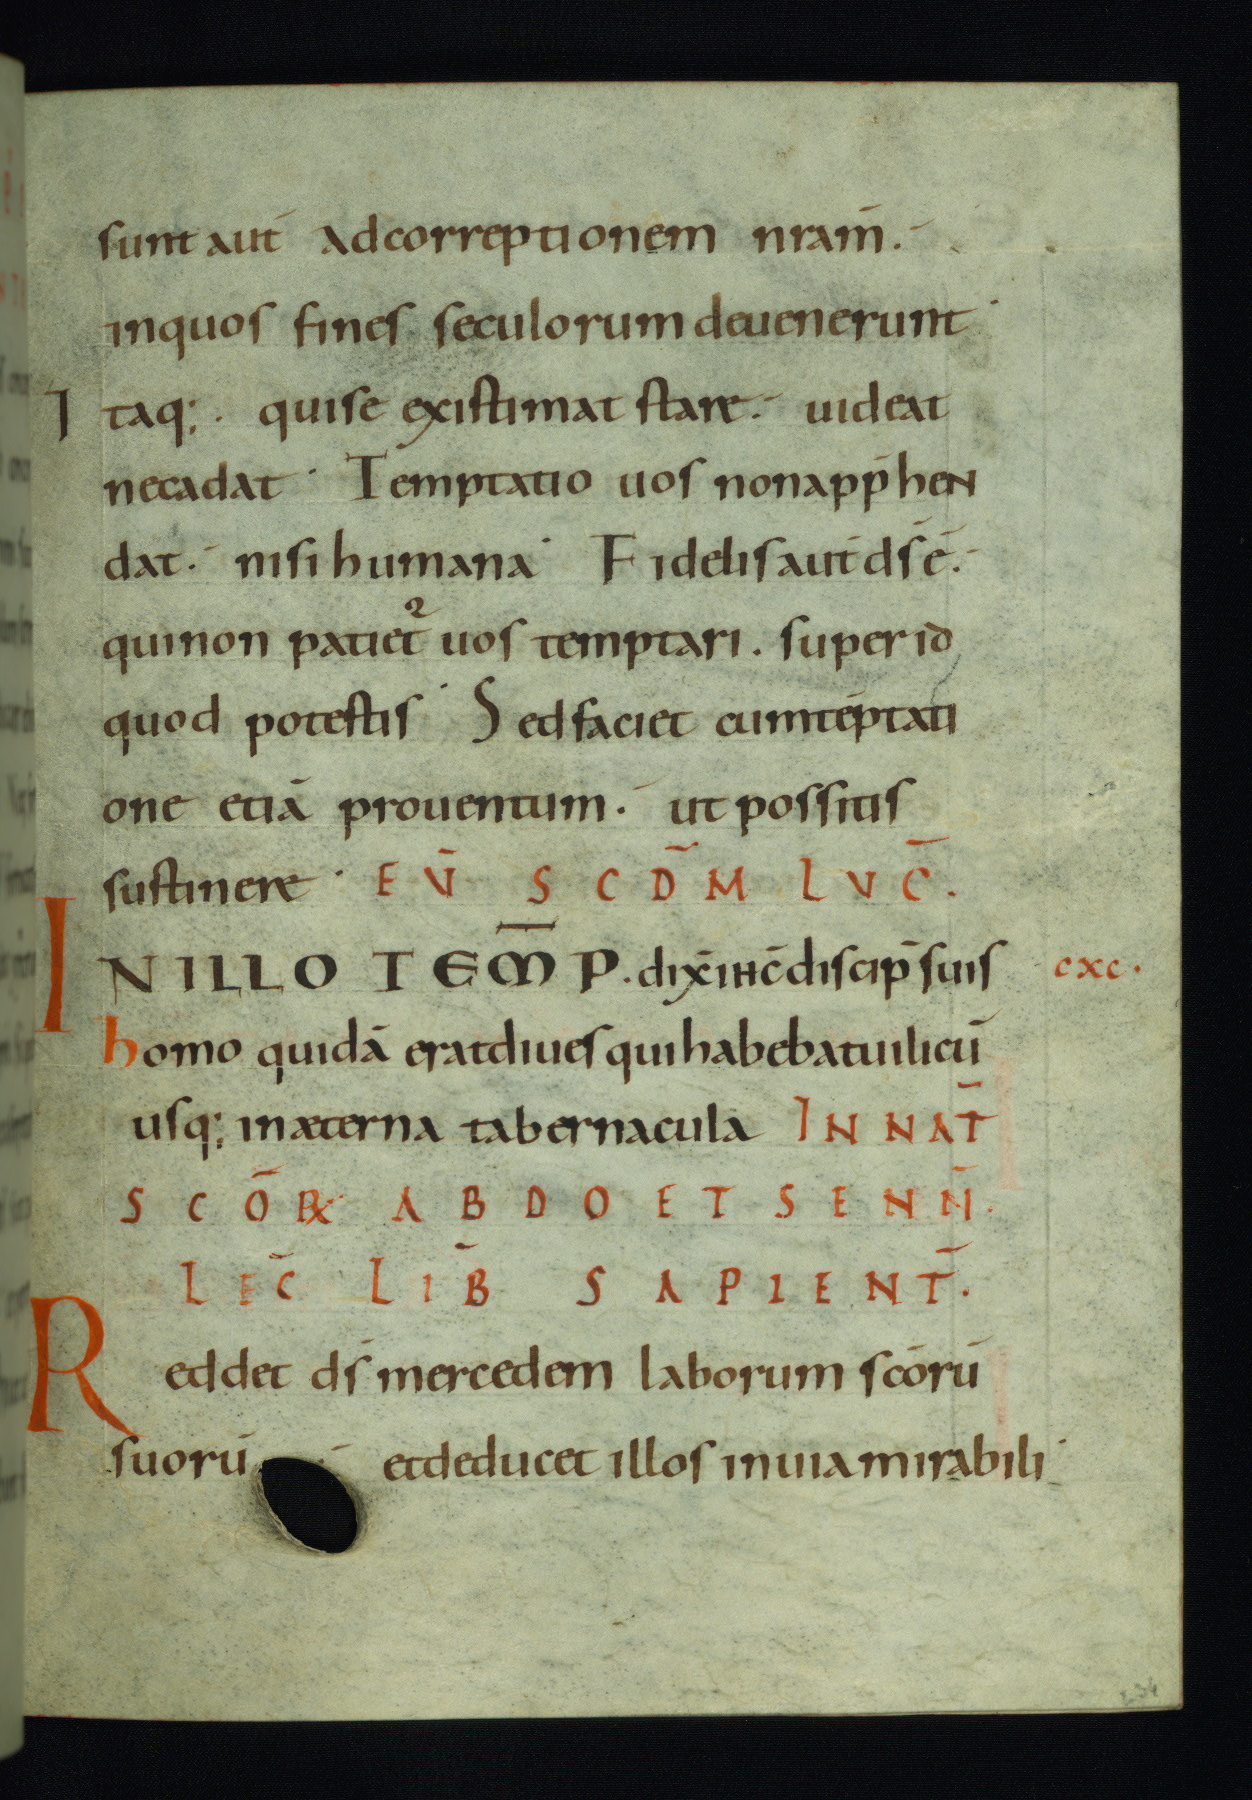 sunt aut̄ adcorreptionem nram̄.
inquos fines seculorum deuenerunt
Itaq; quise existimat stare. uideat
necadat. Temptatio uos nonapp̄hen
dat. nisi humana. Fidelis aut̄ ds̄ ē.
quinon patiet᷑ uos temptari. super id
quod potestis. Sed faciet cumtēptati
one etiā prouentum. ut possitis
sustinere. EV̄ SCD̄M LVC̄.
IN ILLO TEM̄P. dix̄ ihc̄ discip̄ suis cxc.
homo quidā erat diues qui habebat uilicū
usq; inæterna tabernacula IN NAT̄
SCŌꝜ ABDO ET SENN̄.
LEC̄ LIB̄ SAPIENT̄.
Reddet ds̄ mercedem laborum scōrū
suorū. et deducet illos in uia mirabili